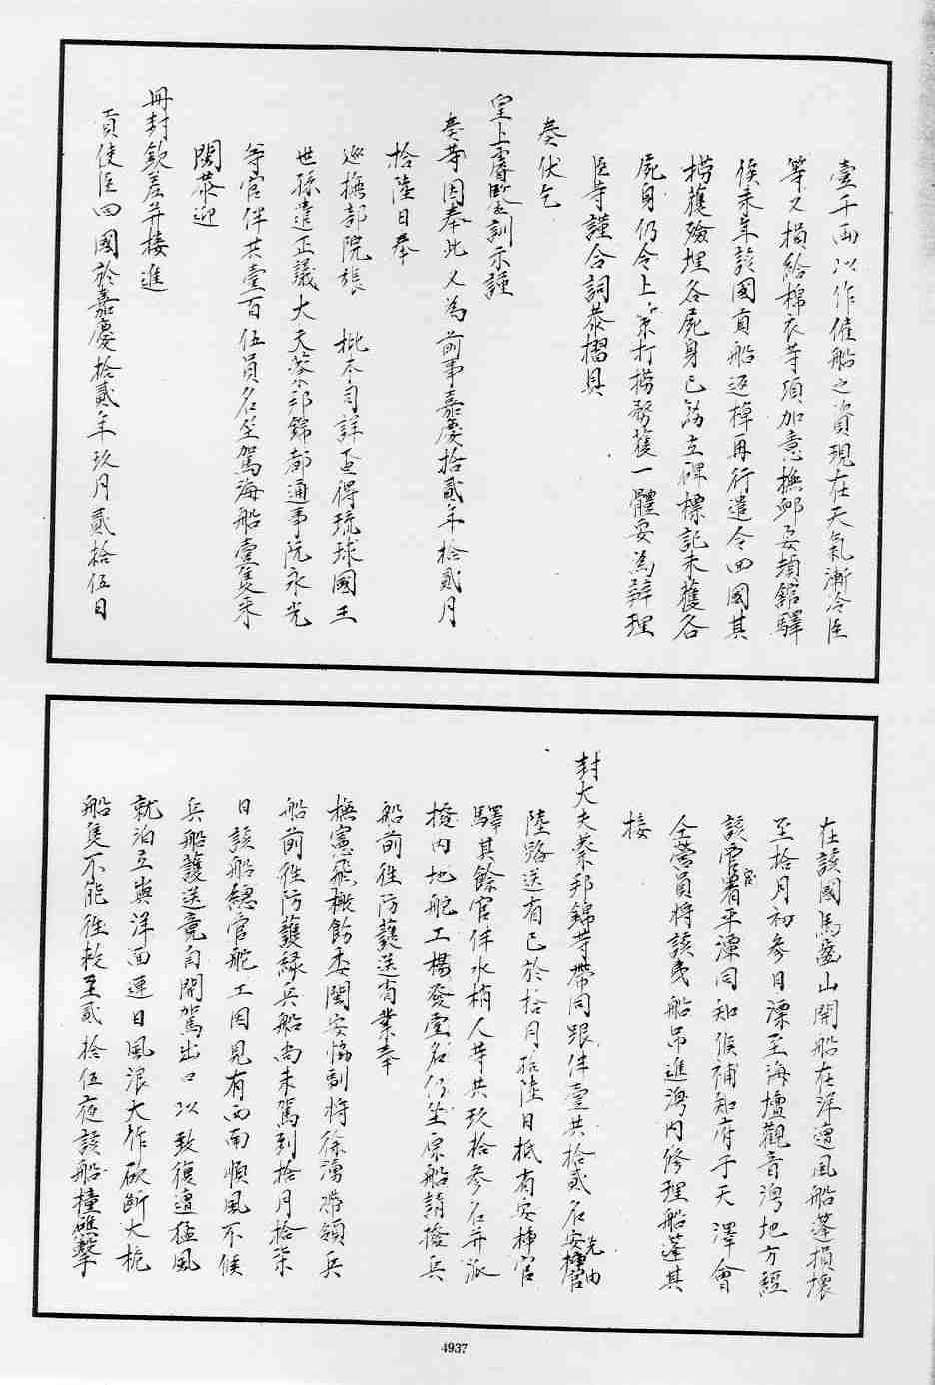 壹千兩以作僱船之資現在天氣漸冷臣
等又捐給棉衣等項加意撫卹安頓館驛
俟來年該國貢船返棹再行遣令回國其
撈獲殮埋各屍身已飭立碑標記未獲各
屍身仍令上緊打撈務獲一體妥為辦理
臣等謹合詞恭摺具
奏伏乞
皇上睿鑒訓示謹
奏等因奉此又為前事嘉慶拾貳年拾貳月
拾陸日奉
巡撫部院張　批本司詳查得琉球國王
世孫遣正議大夫蔡邦錦都通事阮永光
等官伴共壹百伍員名坐駕海船壹隻來
閩恭迎
冊封欽差并接進
貢使臣回國於嘉慶拾貳年玖月貳拾伍日
在該國馬齒山開船在洋遭風船蓬損壞
至拾月初參日漂至海壇觀音灣地方經
該管官署平潭同知候補知府于天澤會
仝營員將該夷船吊進灣內修理船蓬其
接
封大夫蔡邦錦等帶同跟伴壹共拾貳名先由
陸路送省已於拾月拾陸日抵省安插官
驛其餘官伴水梢人等共玖拾參名并派
撥內地舵工楊發壹名仍坐原船請撥兵
船前往防護送省業奉
撫憲飛檄飭委閩安協副將徐湧帶領兵
船前往防護緣兵船尚未駕到拾月拾柒
日該船總官舵工因見有西南順風不候
兵船護送竟自開駕出口以致復遭猛風
就泊㠀嶼洋面連日風浪大作砍斷大桅
船隻不能徃駛至貳拾伍夜該船撞礁擊
4937